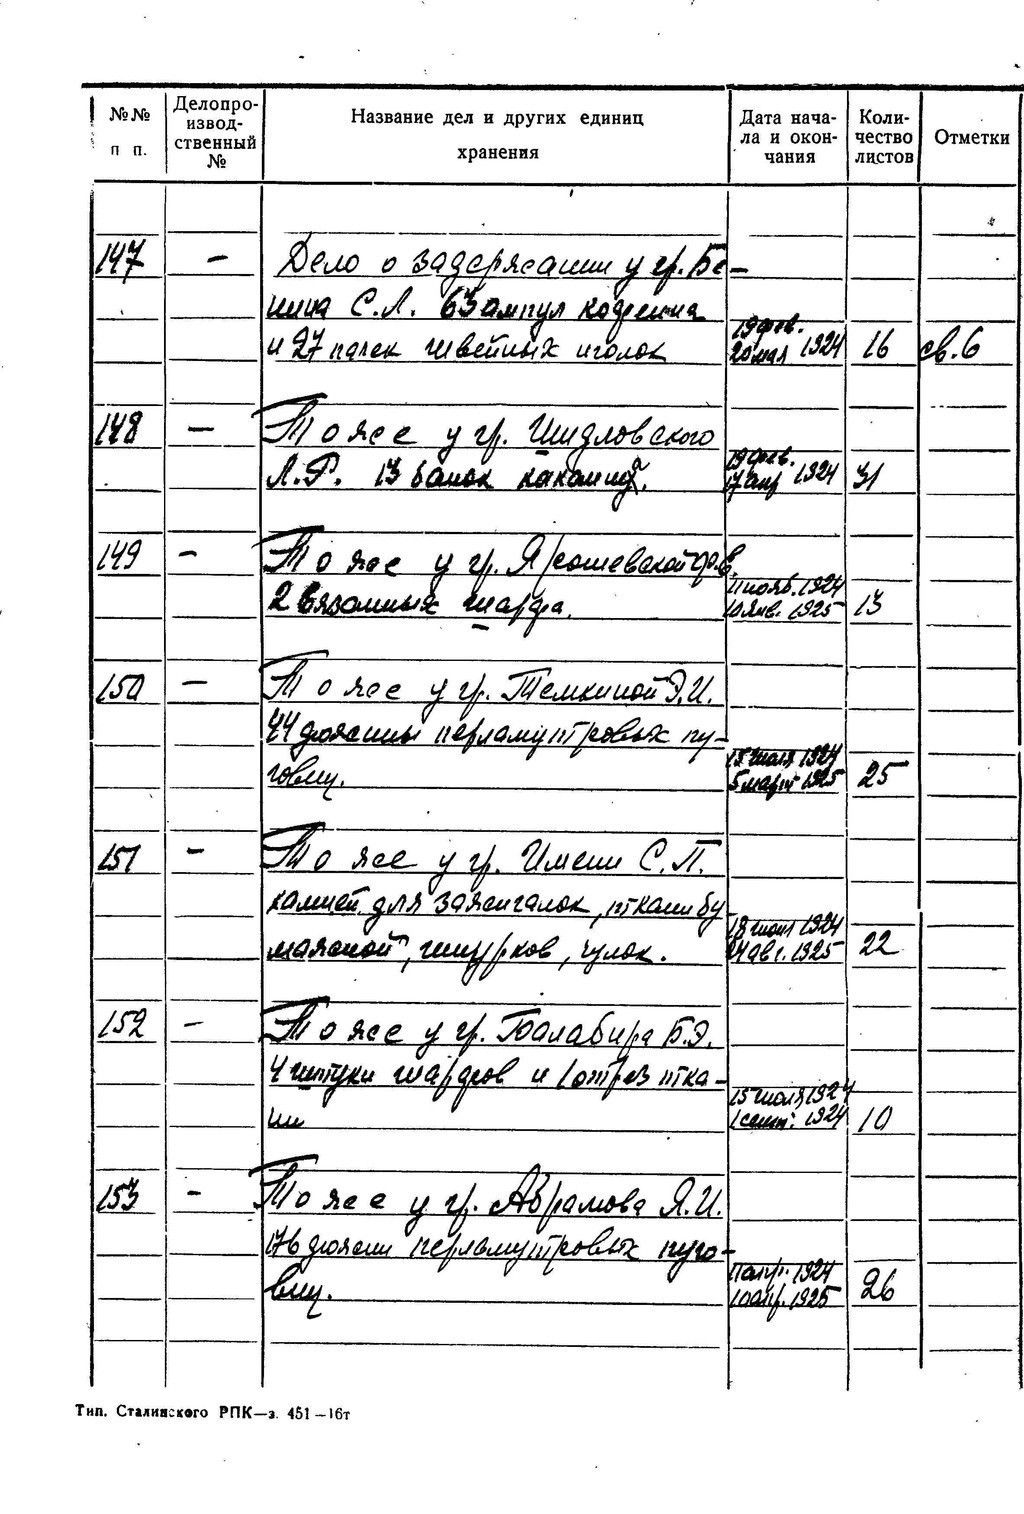 №№ п п.
Делопроизвод-
ственный №
Название дел и других единиц
хранения
Дата нача-
ла и окон-
чания
Коли-
чество
листов
Отметки
147 — Дело о задержании у гр. Бе-
нина С.Л. 63 ампул кофеина
и 27 пачек швейных иголок
19 фев.
20 мая 1924 16 св. 6
148 — То же у гр. Шидловского
Л.Р. 13 банок
19 фев.
17 апр 1924 31
149 — То же у гр. Ярошевской
2 вязанных шарфа.
11 нояб. 1924
10 янв. 1925 13
150 — То же у гр. Темкиной Э.И.
44 дюжины перламутровых пу-
говиц.
15 июля 1924
5 март 1925 25
151 — То же у гр. Имени С.П.
камней для зажигалок, ткани бу
мажной, шнурков, чулок.
18 июля 1924
24 авг. 1925 22
152 — То же у гр. Балабира Б.Э.
4 штуки шарфов и 1 отрез тка-
ни
15 июля 1924
1 сент. 1924 10
153 — То же у гр. Абрамова Я.И.
176 дюжин перламутровых пуго-
виц.
11 апр. 1924
10 апр. 1925 26
Тип. Сталинского РПК—з. 451—16т